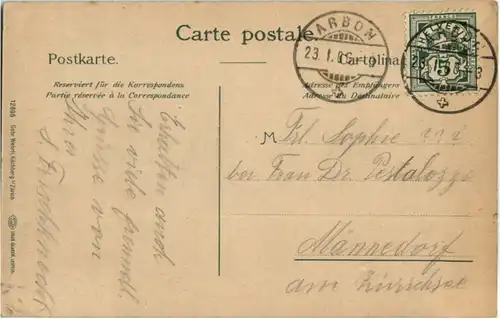 Carte postale
Postkarte.
Cartolina
Reserviert für die Korrespondenz
Partie réservée à la Correspondance
Adresse des Empfängers
Adresse du Destinataire
ARBON
23. I. 05
HELVETIA
FRANCO
5
Erhalten auch
Sie viele freundl.
Grüsse von
Ihrer
S.
Frl. Sophie
bei Frau Dr. Pestalozzi
Männedorf
am Zürichsee
12695